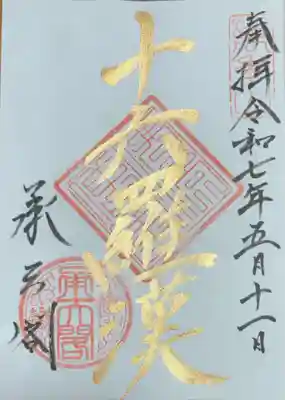 奉拝 令和七年五月十一日
十六羅漢
承天閣